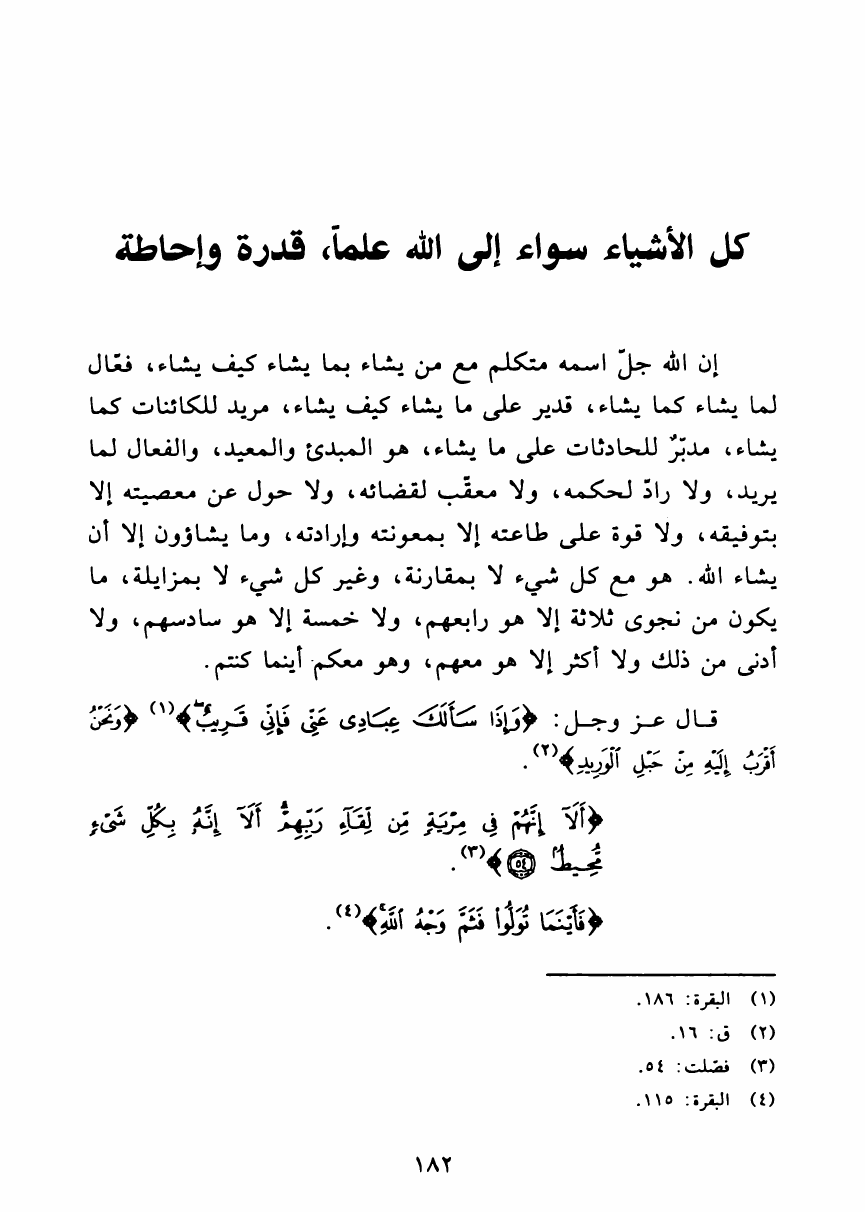 كل الأشياء سواء إلى الله علماً، قدرة وإحاطة
إن الله جلّ اسمه متكلم مع من يشاء بما يشاء كيف يشاء، فعّال
لما يشاء كما يشاء، قدير على ما يشاء كيف يشاء، مريد للكائنات كما
يشاء، مدبّرٌ للحادثات على ما يشاء، هو المبدئ والمعيد، والفعال لما
يريد، ولا رادّ لحكمه، ولا معقّب لقضائه، ولا حول عن معصيته إلا
بتوفيقه، ولا قوة على طاعته إلا بمعونته وإرادته، وما يشاؤون إلا أن
يشاء الله. هو مع كل شيء لا بمقارنة، وغير كل شيء لا بمزايلة، ما
يكون من نجوى ثلاثة إلا هو رابعهم، ولا خمسة إلا هو سادسهم، ولا
أدنى من ذلك ولا أكثر إلا هو معهم، وهو معكم أينما كنتم.
قال عز وجل: ﴿وَإِذَا سَأَلَكَ عِبَادِى عَنِّى فَإِنِّى قَرِيبٌۖ﴾(١) ﴿وَنَحْنُ
أَقْرَبُ إِلَيْهِ مِنْ حَبْلِ ٱلْوَرِيدِ﴾(٢).
﴿أَلَآ إِنَّهُمْ فِى مِرْيَةٍ مِّن لِّقَآءِ رَبِّهِمْۗ أَلَآ إِنَّهُۥ بِكُلِّ شَىْءٍ
مُّحِيطٌۢ ٥٤﴾(٣).
﴿فَأَيْنَمَا تُوَلُّوا۟ فَثَمَّ وَجْهُ ٱللَّهِۚ﴾(٤).
(١) البقرة: ١٨٦.
(٢) ق: ١٦.
(٣) فصّلت: ٥٤.
(٤) البقرة: ١١٥.
١٨٢